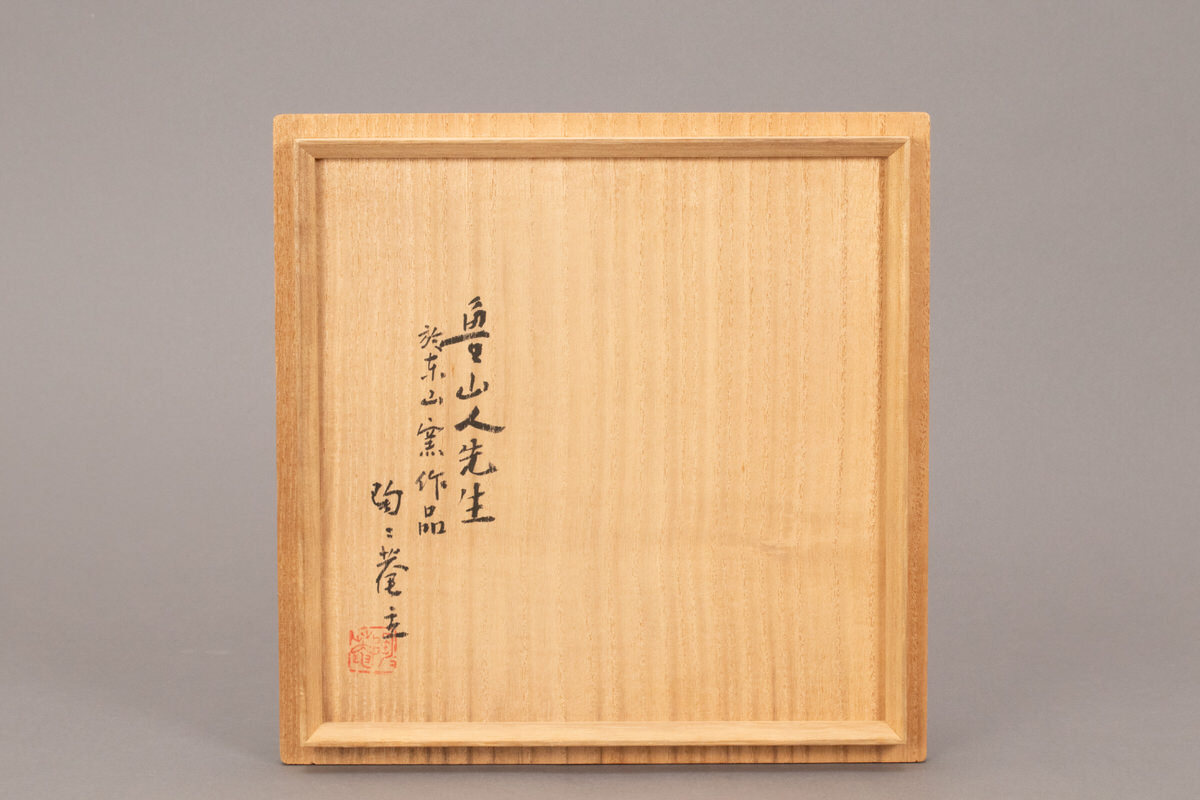 魯山人先生
於東山窯作品
陶〻菴主